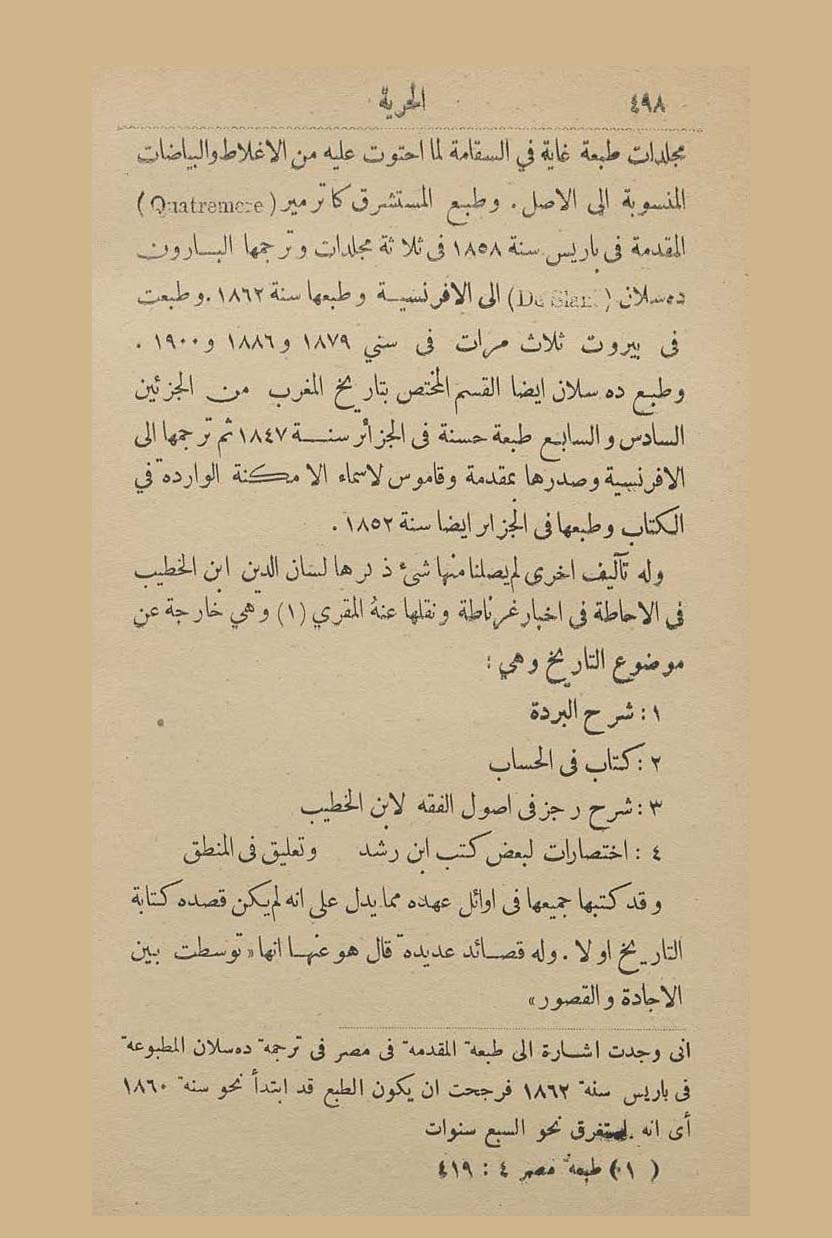 ٤٩٨ الحرية
مجلدات طبعة غاية في السقامة لما احتوت عليه من الاغلاط والبياضات
المنسوبة الى الاصل . وطبع المستشرق كاترمير (Quatremere)
المقدمة في باريس سنة ١٨٥٨ في ثلاثة مجلدات وترجمها البارون
ده سلان (De Slane) الى الافرنسية وطبعها سنة ١٨٦٢ . وطبعت
في بيروت ثلاث مرات في سني ١٨٧٩ و ١٨٨٦ و ١٩٠٠ .
وطبع ده سلان ايضا القسم المختص بتاريخ المغرب من الجزئين
السادس والسابع طبعة حسنة في الجزائر سنة ١٨٤٧ ثم ترجمها الى
الافرنسية وصدرها بمقدمة وقاموس لاسماء الامكنة الواردة في
الكتاب وطبعها في الجزاير ايضا سنة ١٨٥٢ .
وله تآليف اخرى لم يصلنا منها شئ ذكرها لسان الدين ابن الخطيب
في الاحاطة في اخبار غرناطة ونقلها عنه المقري (١) وهي خارجة عن
موضوع التاريخ وهي :
١ : شرح البردة
٢ : كتاب في الحساب
٣ : شرح رجز في اصول الفقه لابن الخطيب
٤ : اختصارات لبعض كتب ابن رشد وتعليق في المنطق
وقد كتبها جميعها في اوائل عهده مما يدل على انه لم يكن قصده كتابة
التاريخ اولا . وله قصائد عديدة قال هو عنها انها « توسطت بين
الاجادة والقصور »
اني وجدت اشارة الى طبعة المقدمة في مصر في ترجمة ده سلان المطبوعة
في باريس سنة ١٨٦٢ فرجحت ان يكون الطبع قد ابتدأ نحو سنة ١٨٦٠
أي انه استغرق نحو السبع سنوات
(١) طبعة مصر ٤ : ٤١٩